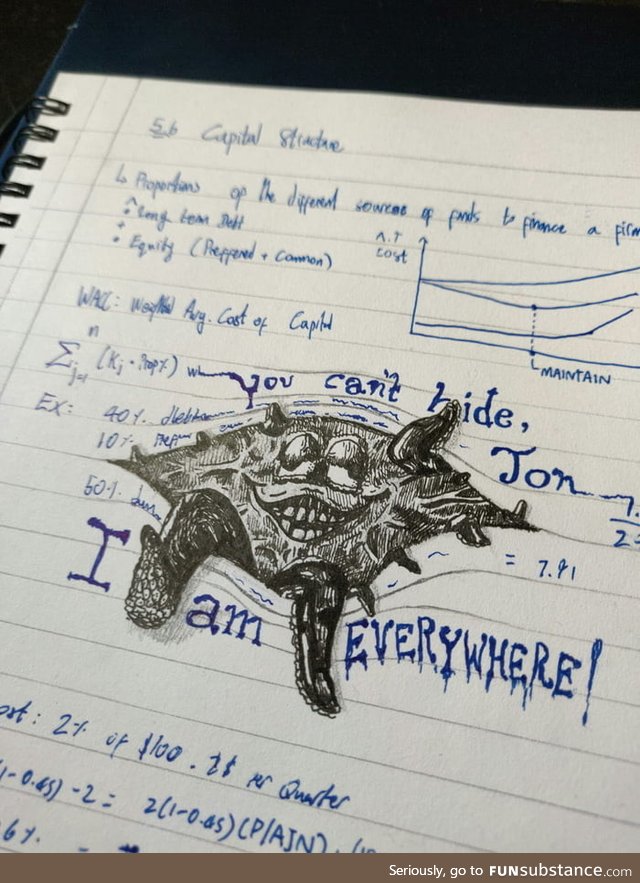 5.6 Capital Structure
↳ Proportions of the different sources of funds to finance a firm
• Long term Debt
+
• Equity (Preffered + Common)
A.T
cost
MAINTAIN
WACC: Weighted Avg. Cost of Capital
n
Σ (Kj · Prop%)
j=1
You can't hide,
Jon
EX: 40%
10%
50%
= 7.91
I am EVERYWHERE!
ost: 2% of $100. 2$ per Quarter
1-0.45) -2 = 2(1-0.45)(P/A,N)
6%
Seriously, go to FUNsubstance.com